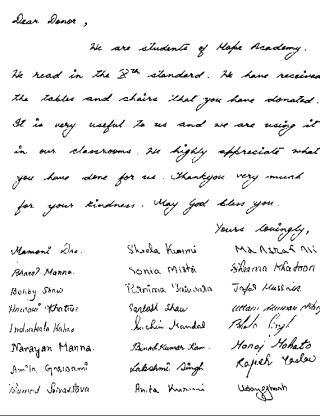 Dear Donor,
We are students of Hope Academy.
We read in the Xth standard. We have received
the tables and chairs that you have donated.
It is very useful to us and we are using it
in our classrooms. We highly appreciate what
you have done for us. Thankyou very much
for your kindness. May God bless you.
Yours lovingly,
Mamoni Das. Sheela Kumari Md Asraf Ali
Manna. Sonia Mistri Khatoon
Bobby Shaw Purnima Jafar Hussain
Khatun Santosh Shaw Kumar
Sachin Mandal Singh
Narayan Manna. Binod Kumar Ram. Manoj Mahato
Anita Goswami Lakshmi Singh Rajesh Yadav
Srivastava Anita Kumari